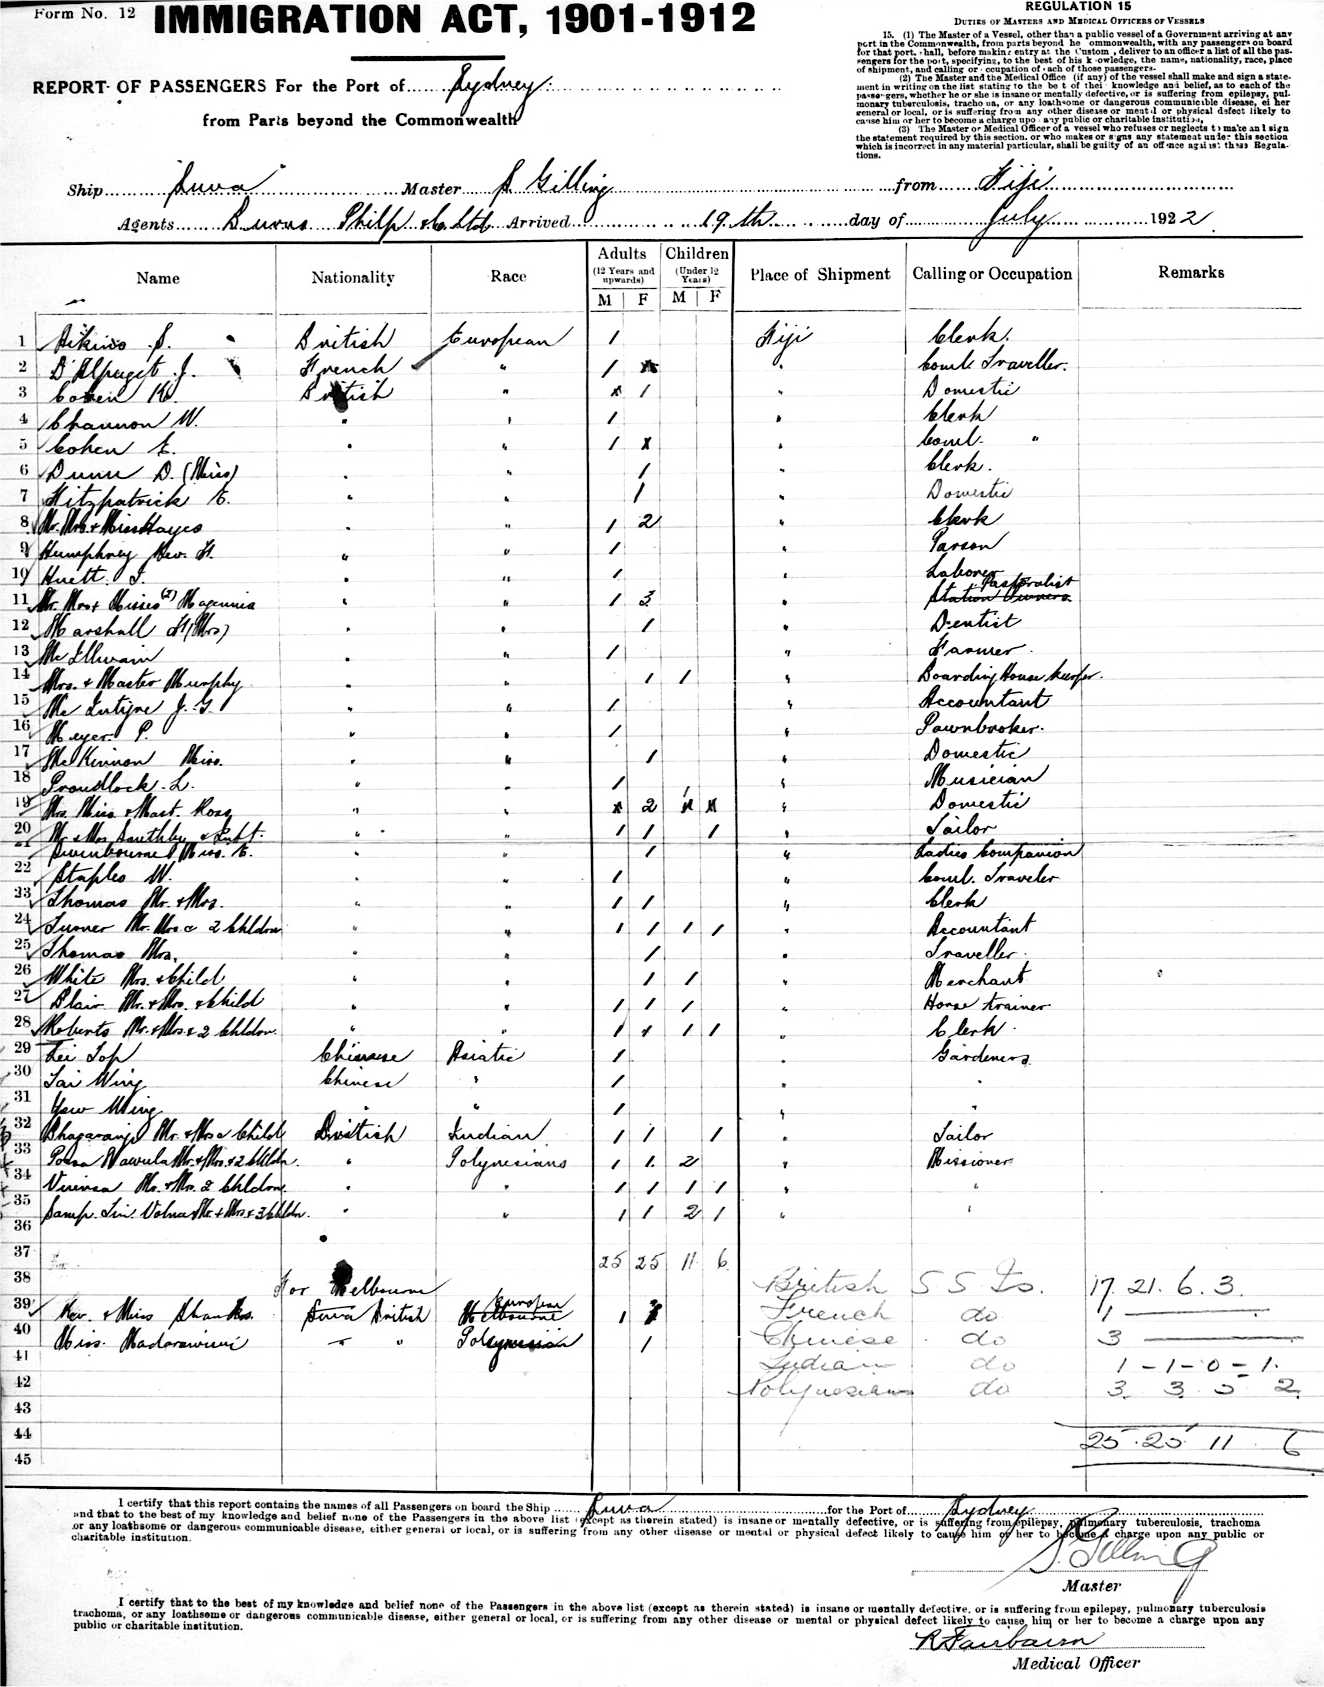 Form No. 12
IMMIGRATION ACT, 1901-1912
REPORT OF PASSENGERS For the Port of Sydney.
from Parts beyond the Commonwealth
REGULATION 15
DUTIES OF MASTERS AND MEDICAL OFFICERS OF VESSELS
15. (1) The Master of a Vessel, other than a public vessel of a Government arriving at any
port in the Commonwealth, from parts beyond he ommonwealth, with any passengers on board
for that port, hall, before making entry at the Custom, deliver to an officer a list of all the pas-
sengers for the port, specifying, to the best of his k owledge, the name, nationality, race, place
of shipment, and calling or occupation of each of those passengers.
(2) The Master and the Medical Office (if any) of the vessel shall make and sign a state-
ment in writing on the list stating to the be t of thei knowledge and belief, as to each of the
passengers, whether he or she is insane or mentally defective, or is suffering from epilepsy, pul-
monary tuberculosis, trachoma, or any loathsome or dangerous communicable disease, ei her
general or local, or is suffering from any other disease or mental or physical defect likely to
cause him or her to become a charge upon any public or charitable institution,
(3) The Master or Medical Officer of a vessel who refuses or neglects to make and sign
the statement required by this section, or who makes or signs any statement under this section
which is incorrect in any material particular, shall be guilty of an offence against these Regula-
tions.
Ship "Suva" Master S Gilling from Fiji
Agents Burns Philp & Co Ltd Arrived 19th day of July 1922
Name Nationality Race Adults (12 Years and upwards) M F Children (Under 12 Years) M F Place of Shipment Calling or Occupation Remarks
1 Aikins S. British European 1 Fiji Clerk.
2 D'Alpuget J. French " 1 x " Coml. Traveller.
3 Cohen K. British " x 1 " Domestic
4 Channon W. " " 1 " Clerk
5 Cohen E. " " 1 x " Coml. "
6 Dunn D. (Miss) " " 1 " Clerk.
7 Fitzpatrick E. " " 1 " Domestic
8 Mr. Mrs. & Miss Hayes " " 1 2 " Clerk
9 Humphrey Rev. H. " " 1 " Parson
10 Huett. J. " " 1 " Laborer
11 Mr. Mrs & Misses (2) Magennis " " 1 3 " Station Owners Pastoralist
12 Marshall (Mrs) " " 1 " Dentist
13 McIllwain " " 1 " Farmer.
14 Mrs. & Master Murphy " " 1 1 " Boarding House Keeper.
15 McIntyre J. G. " " 1 " Accountant
16 Meyer P. " " 1 " Pawnbroker.
17 McKinnon Miss. " " 1 " Domestic
18 Proudlock. L. " " 1 " Musician
19 Mrs. Miss & Mast. Ross " " x 2 1 x " Domestic
20 Mr & Mrs Smethby & Inft. " " 1 1 1 " Tailor
21 Swinbourne Miss. E. " " 1 " Ladies Companion
22 Staples W. " " 1 " Coml. Traveler
23 Thomas Mr. & Mrs. " " 1 1 " Clerk
24 Turner Mr. Mrs & 2 Chldn " " 1 1 1 1 " Accountant
25 Thomas Mrs. " " 1 " Traveller.
26 White Mrs. & Child " " 1 1 " Merchant
27 Blair Mr. & Mrs. & Child " " 1 1 1 " Horse trainer
28 Roberts Mr. & Mrs & 2 Chldn. " " 1 1 1 1 " Clerk.
29 Lei Top Chinese Asiatic 1 " Gardeners
30 Tai Wing Chinese " 1 " "
31 Yew Wing " " 1 " "
32 Mr. & Mrs & Child British Indian 1 1 1 " Tailor
33 Mr. & Mrs. & 2 Chldn. " Polynesians 1 1 2 " Missioner
34 Mr. & Mrs. 2 Chldn. " " 1 1 1 1 " "
35 Mr. & Mrs & 3 Chldn. " " 1 1 2 1 " "
36
37 25 25 11 6
38 For Melbourne British S S Is. 17. 21. 6. 3.
39 Rev. & Miss Shanks. Suva British Melbourne European 1 1 French do 1
40 Miss. " " Polynesian 1 Chinese do 3
41 Indian do 1 - 1 - 0 - 1.
42 Polynesians do 3. 3. 5 2.
43
44 25. 25 11 6
45
I certify that this report contains the names of all Passengers on board the Ship Suva for the Port of Sydney
and that to the best of my knowledge and belief none of the Passengers in the above list (except as therein stated) is insane or mentally defective, or is suffering from epilepsy, pulmonary tuberculosis, trachoma
or any loathsome or dangerous communicable disease, either general or local, or is suffering from any other disease or mental or physical defect likely to cause him or her to become a charge upon any public or
charitable institution.
S. Gilling
Master
I certify that to the best of my knowledge and belief none of the Passengers in the above list (except as therein stated) is insane or mentally defective, or is suffering from epilepsy, pulmonary tuberculosis
trachoma, or any loathsome or dangerous communicable disease, either general or local, or is suffering from any other disease or mental or physical defect likely to cause him or her to become a charge upon any
public or charitable institution.
R Fairbairn
Medical Officer